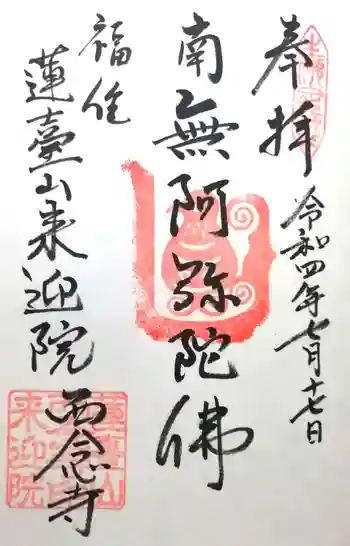 奉拝
令和四年七月十七日
南無阿弥陀佛
福住
蓮臺山来迎院
西念寺